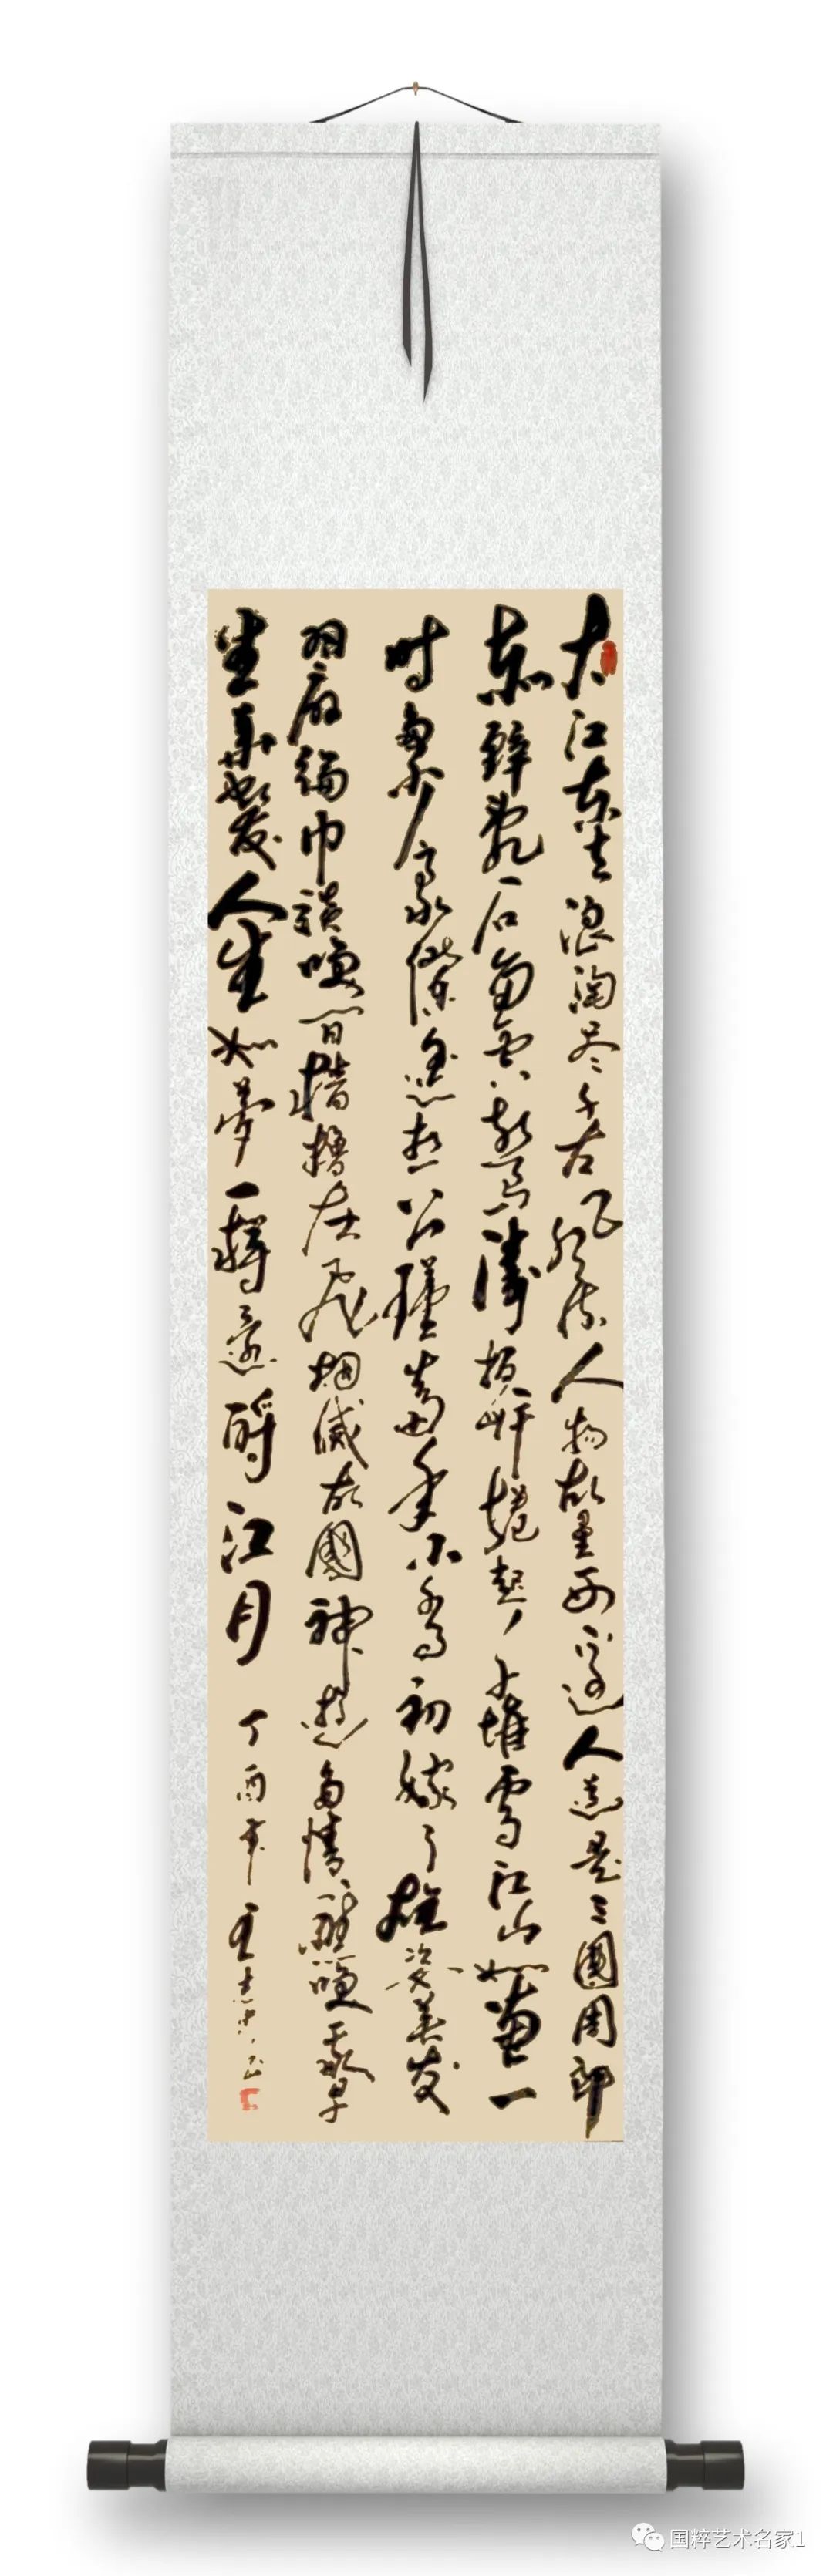 大江东去浪淘尽千古风流人物故垒西边人道是三國周郎
赤壁乱石穿空惊涛拍岸捲起千堆雪江山如画一
时多少豪傑遥想公瑾当年小乔初嫁了雄姿英发
羽扇纶巾谈唤间樯橹灰飞烟滅故國神遊多情應唤我早
生华髮人生如夢一樽還酹江月
丁酉年王
国粹艺术名家1